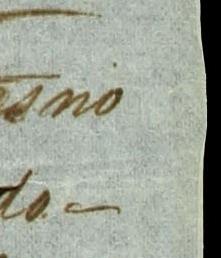 esno
do.—